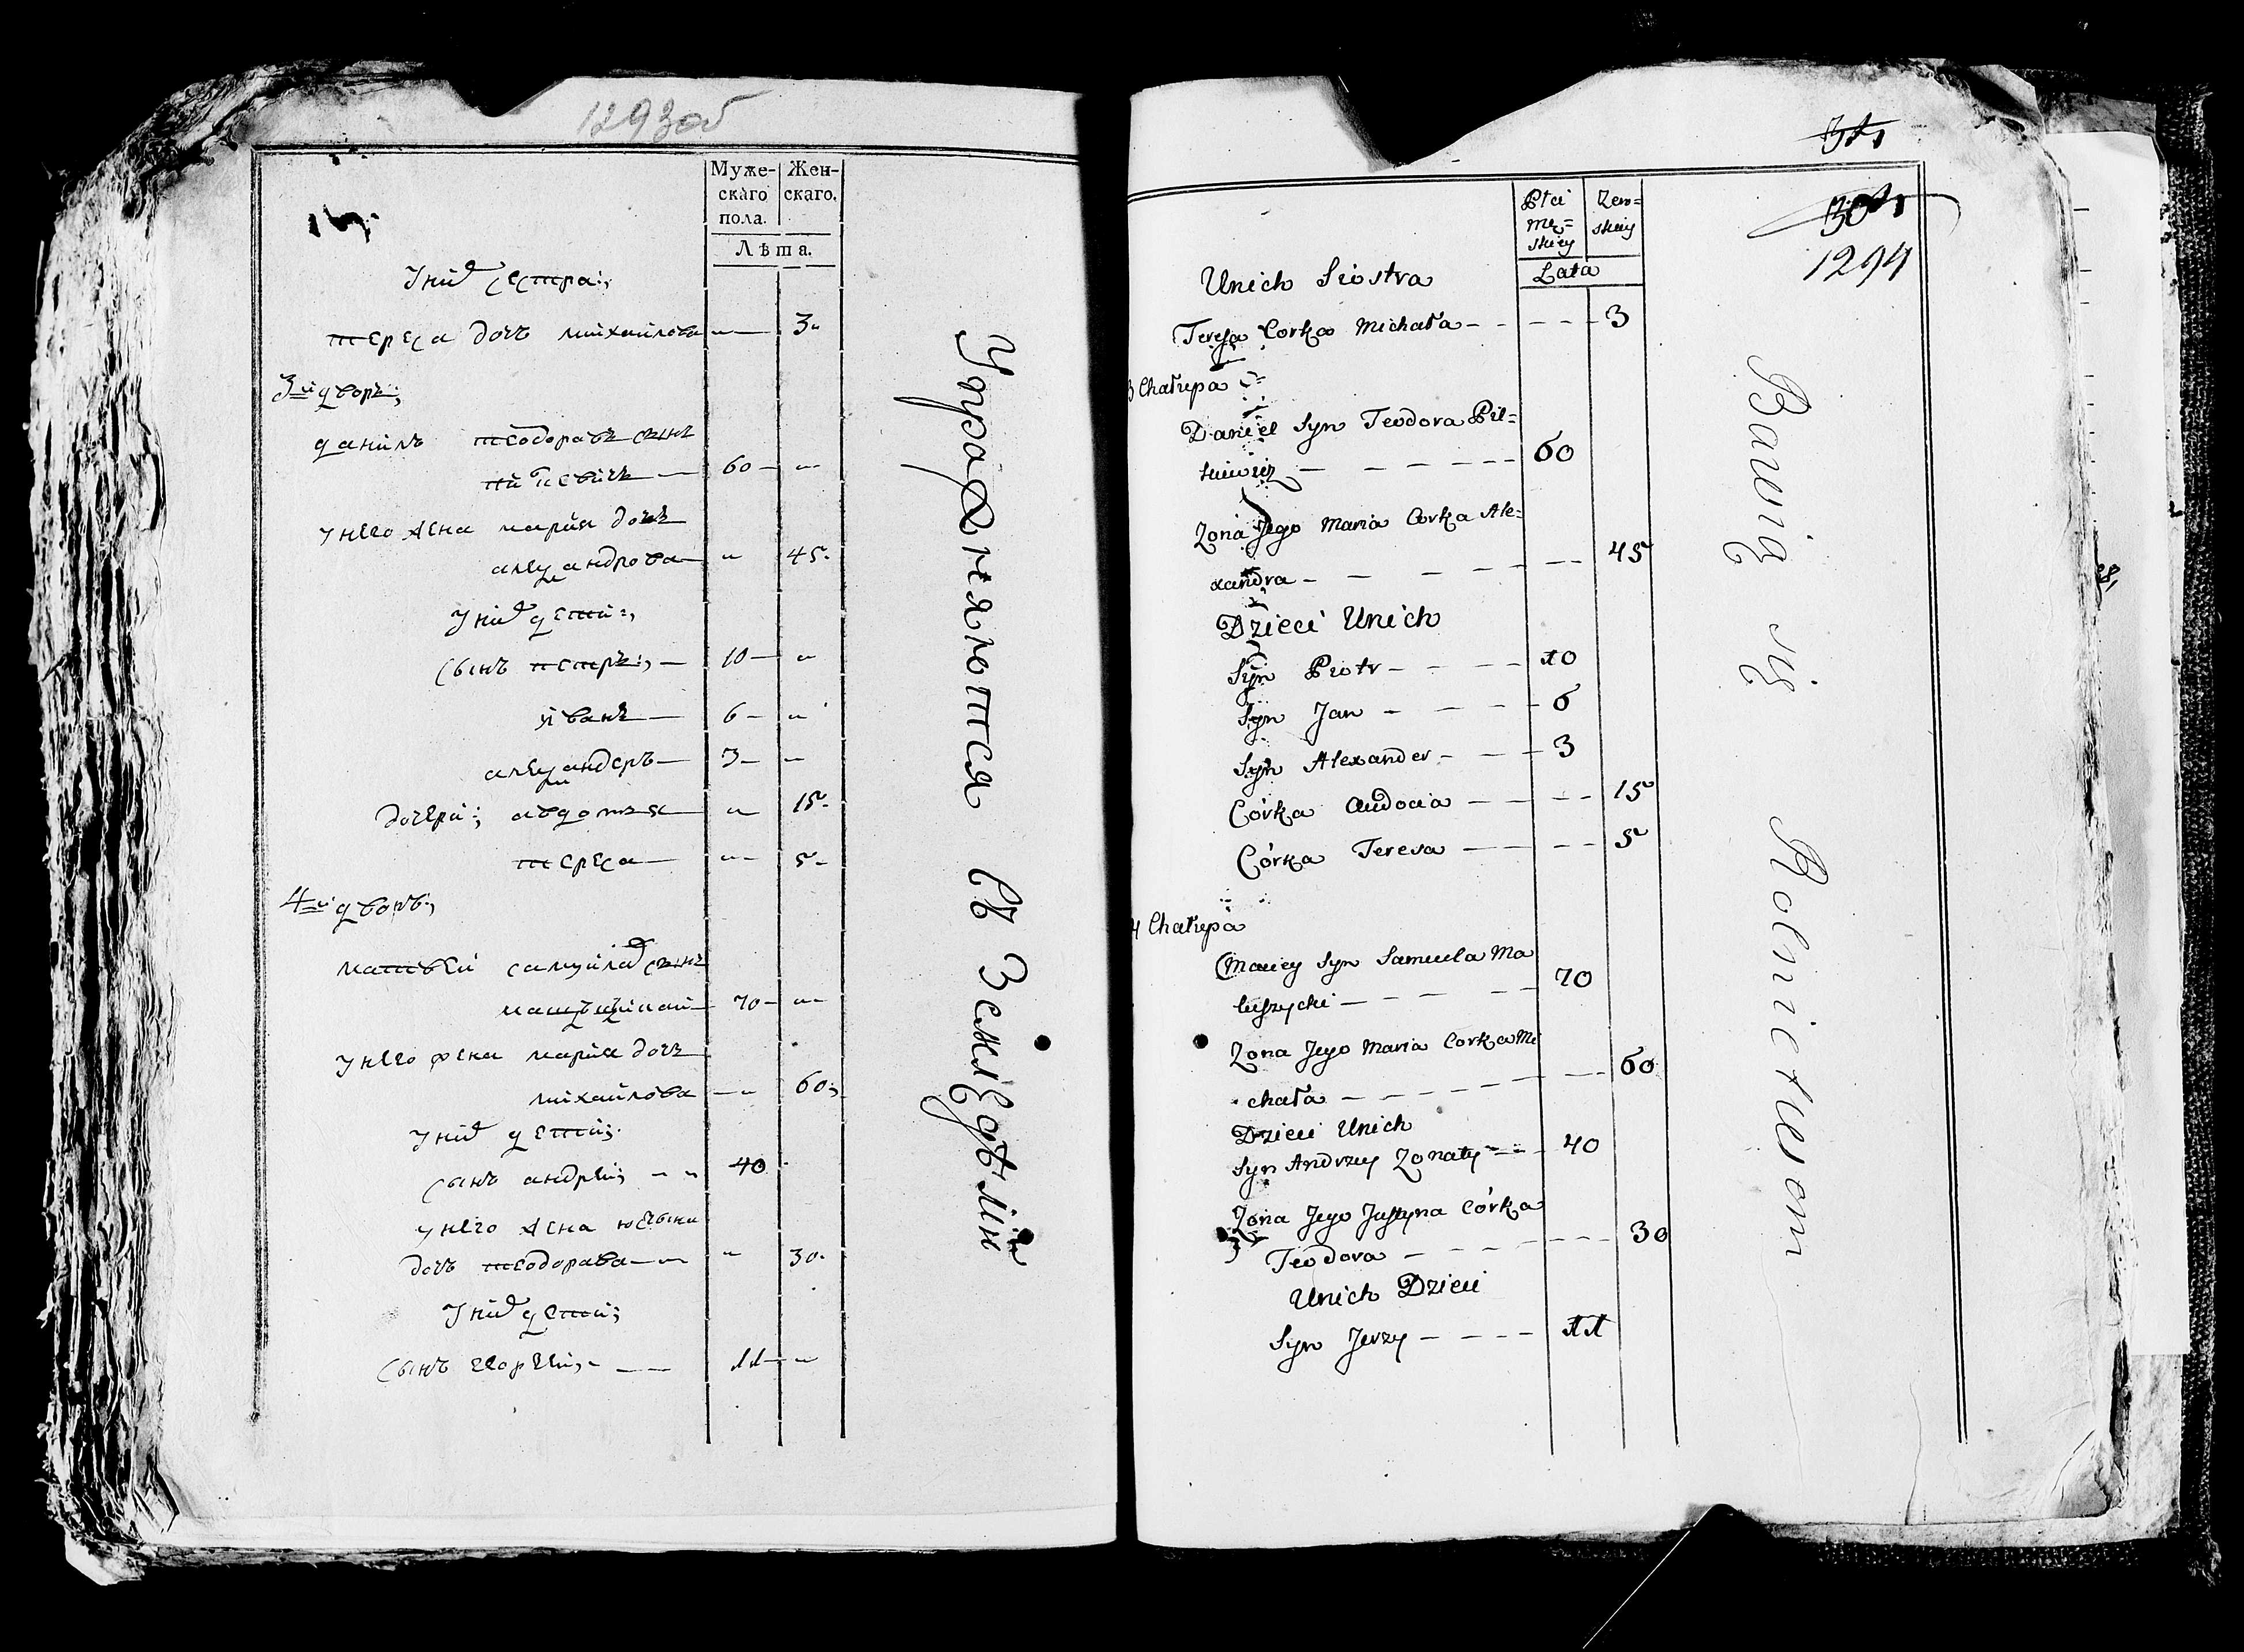 1293об
Муже-
скаго
пола.
Жен-
скаго.
Лѣта.
У них сестра:,
тереса дочъ михайлова — 3
3й дворъ;
данилъ теодоравъ сынъ
60
У него жена мария дочъ
александрова 45
У них дети:,
сынъ петръ:, — 10
иванъ — 6
александеръ — 3
дочери; авдотья — 15
тереса — 5
4й дворъ:,
матьвей самуйлав сынъ
70
У него жена мария дочъ
михайлова 60;
У них дети;
сынъ андрей; 40
У него жена
дочъ теодорава 30
У них дети;
сынъ 11
Упражняютса Съ
1294
Płci
mę=
skiey
Zen=
skiey
Lata
Unich Siostra
Teresa Corka Michała - - - - - 3
3 Chałupa
Daniel Syn Teodora Pil=
60
Zona Jego Maria Corka Ale=
xandra - - - - - - - 45
Dzieci Unich
Syn Piotr - - - - 10
Syn Jan - - - - 6
Syn Alexander - - - 3
Córka Audocia - - - - 15
Córka Teresa - - - - 5
4 Chałupa
Maciey Syn Samuela Ma
luszycki - - - - - 70
Zona Jego Maria Corka Mi
chała - - - - - - - - 60
Dzieci Unich
Syn Andrzey Zonaty - - - 40
Zona Jego Justyna Córka
Teodora - - - - - - - 30
Unich Dzieci
Syn Jerzy - - - - 11
Bawią się Rolnictwem